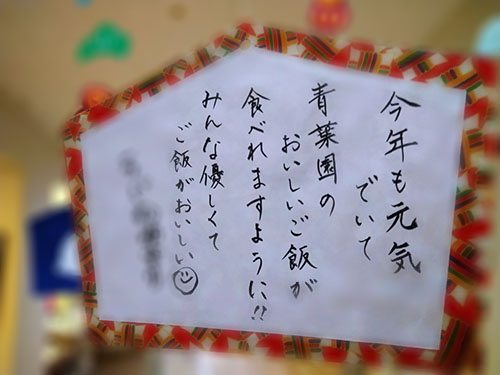 今年も元気
でいて
青葉園の
おいしいご飯が
食べれますように!!
みんな優しくて
ご飯がおいしい☺